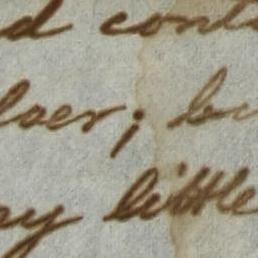 d cont
loer; bu
ay little